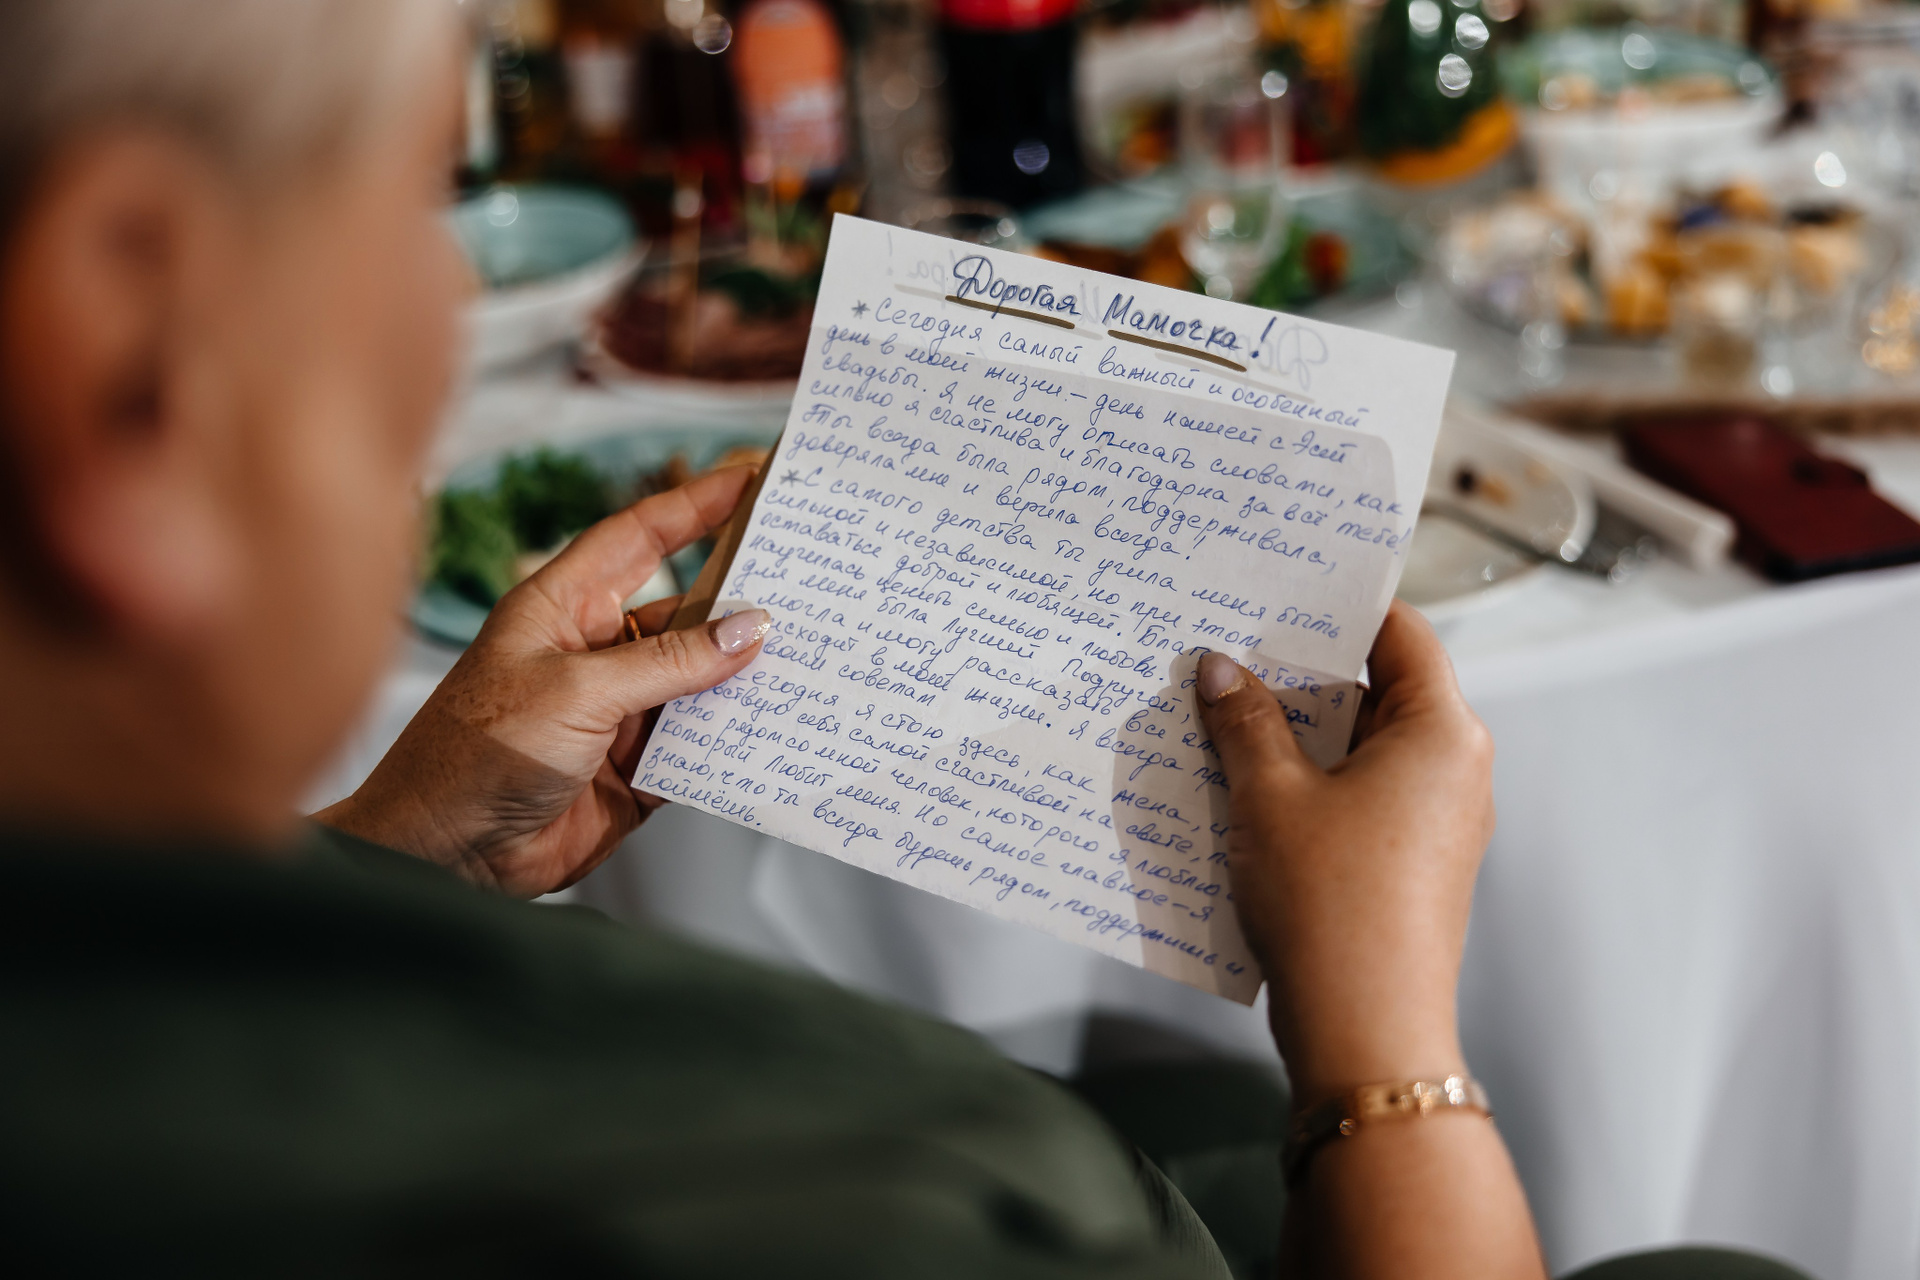 Дорогая Мамочка!
* Сегодня самый важный и особенный
день в моей жизни. – день нашей с Эсей
свадьбы. Я не могу описать словами, как
сильно я счастлива и благодарна за всё тебе!
Ты всегда была рядом, поддерживала,
доверяла мне и верила всегда!
* С самого детства ты учила меня быть
сильной и независимой, но при этом
оставаться доброй и любящей. тебе я
научилась ценить семью и любовь.
для меня была лучшей подругой,
я могла и могу рассказать все
в моей жизни. Я всегда
советам
Сегодня я стою здесь, как жена, и
себя самой счастливой на свете,
что рядом со мной человек, которого я люблю
который любит меня. Но самое главное – я
знаю, что ты всегда будешь рядом, поддержишь и
поймёшь.